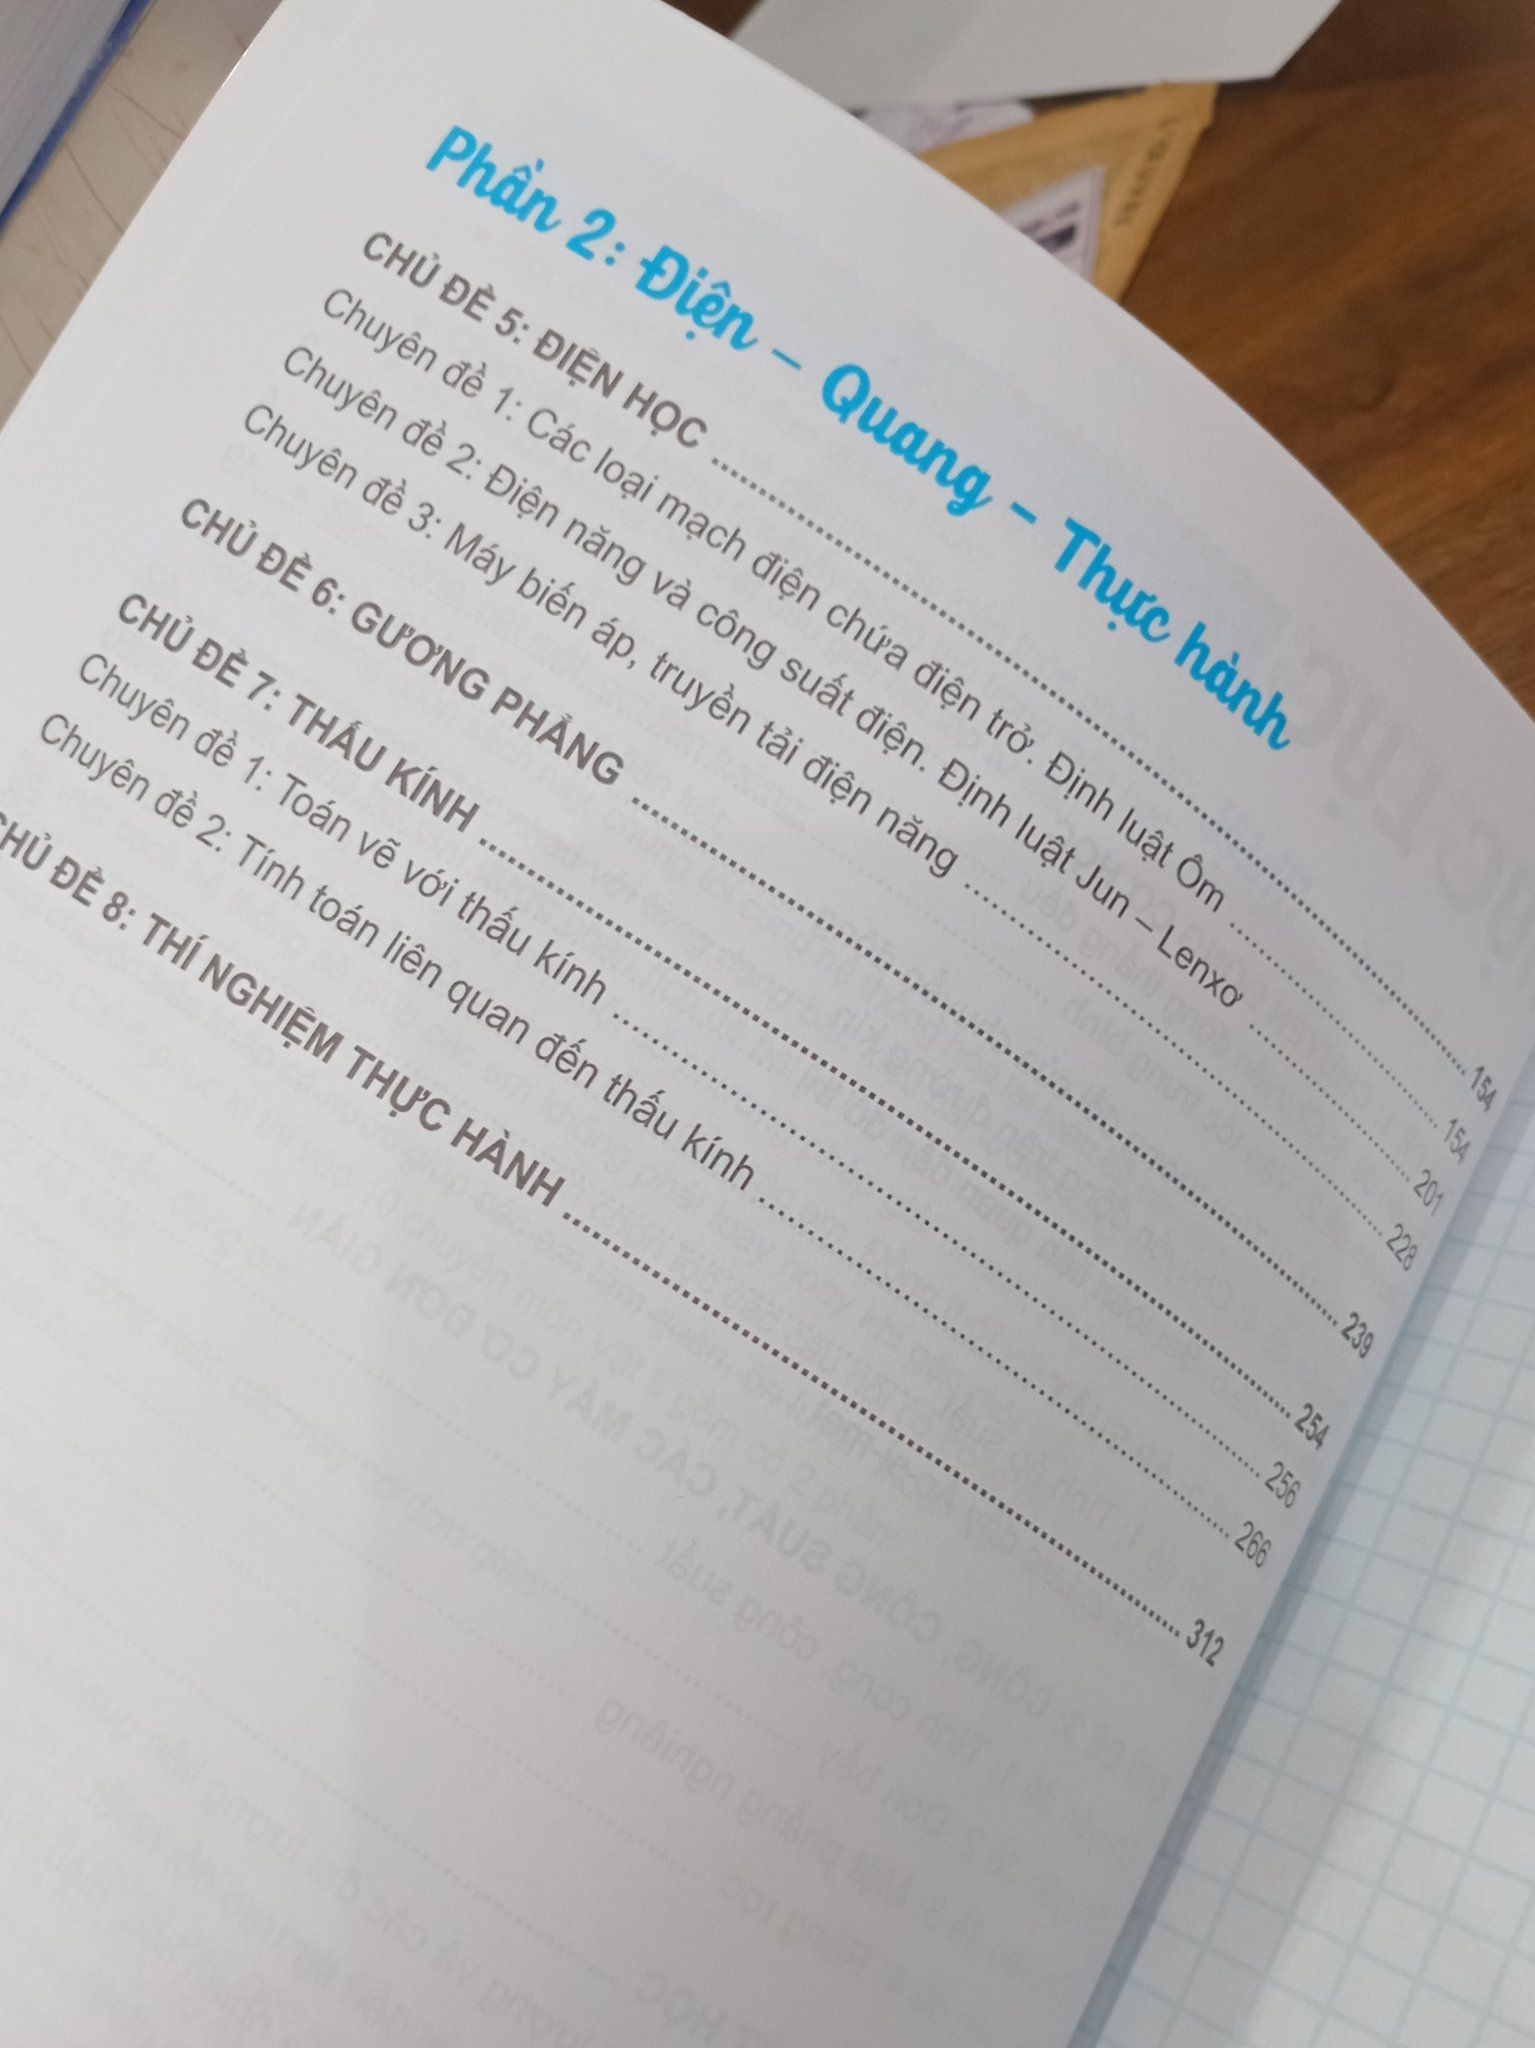 Phần 2: Điện – Quang – Thực hành
CHỦ ĐỀ 5: ĐIỆN HỌC 154
Chuyên đề 1: Các loại mạch điện chứa điện trở. Định luật Ôm 154
Chuyên đề 2: Điện năng và công suất điện. Định luật Jun – Lenxơ 201
Chuyên đề 3: Máy biến áp, truyền tải điện năng 228
CHỦ ĐỀ 6: GƯƠNG PHẲNG 239
CHỦ ĐỀ 7: THẤU KÍNH 254
Chuyên đề 1: Toán vẽ với thấu kính 256
Chuyên đề 2: Tính toán liên quan đến thấu kính 266
CHỦ ĐỀ 8: THÍ NGHIỆM THỰC HÀNH 312